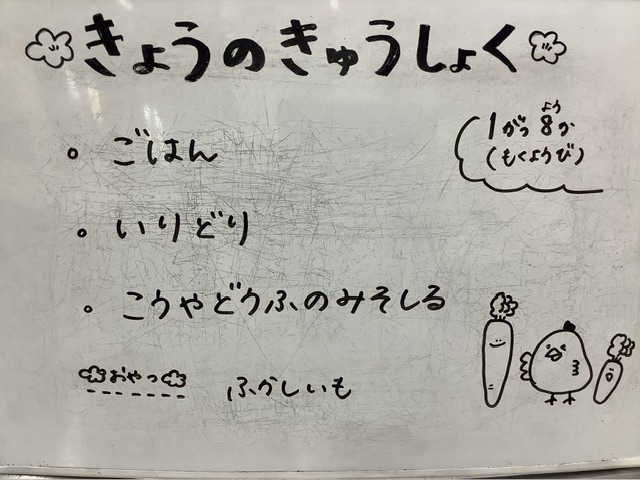 きょうのきゅうしょく
1がつ8か
よう
(もくようび)
。ごはん
。いりどり
。こうやどうふのみそしる
おやつ ふかしいも